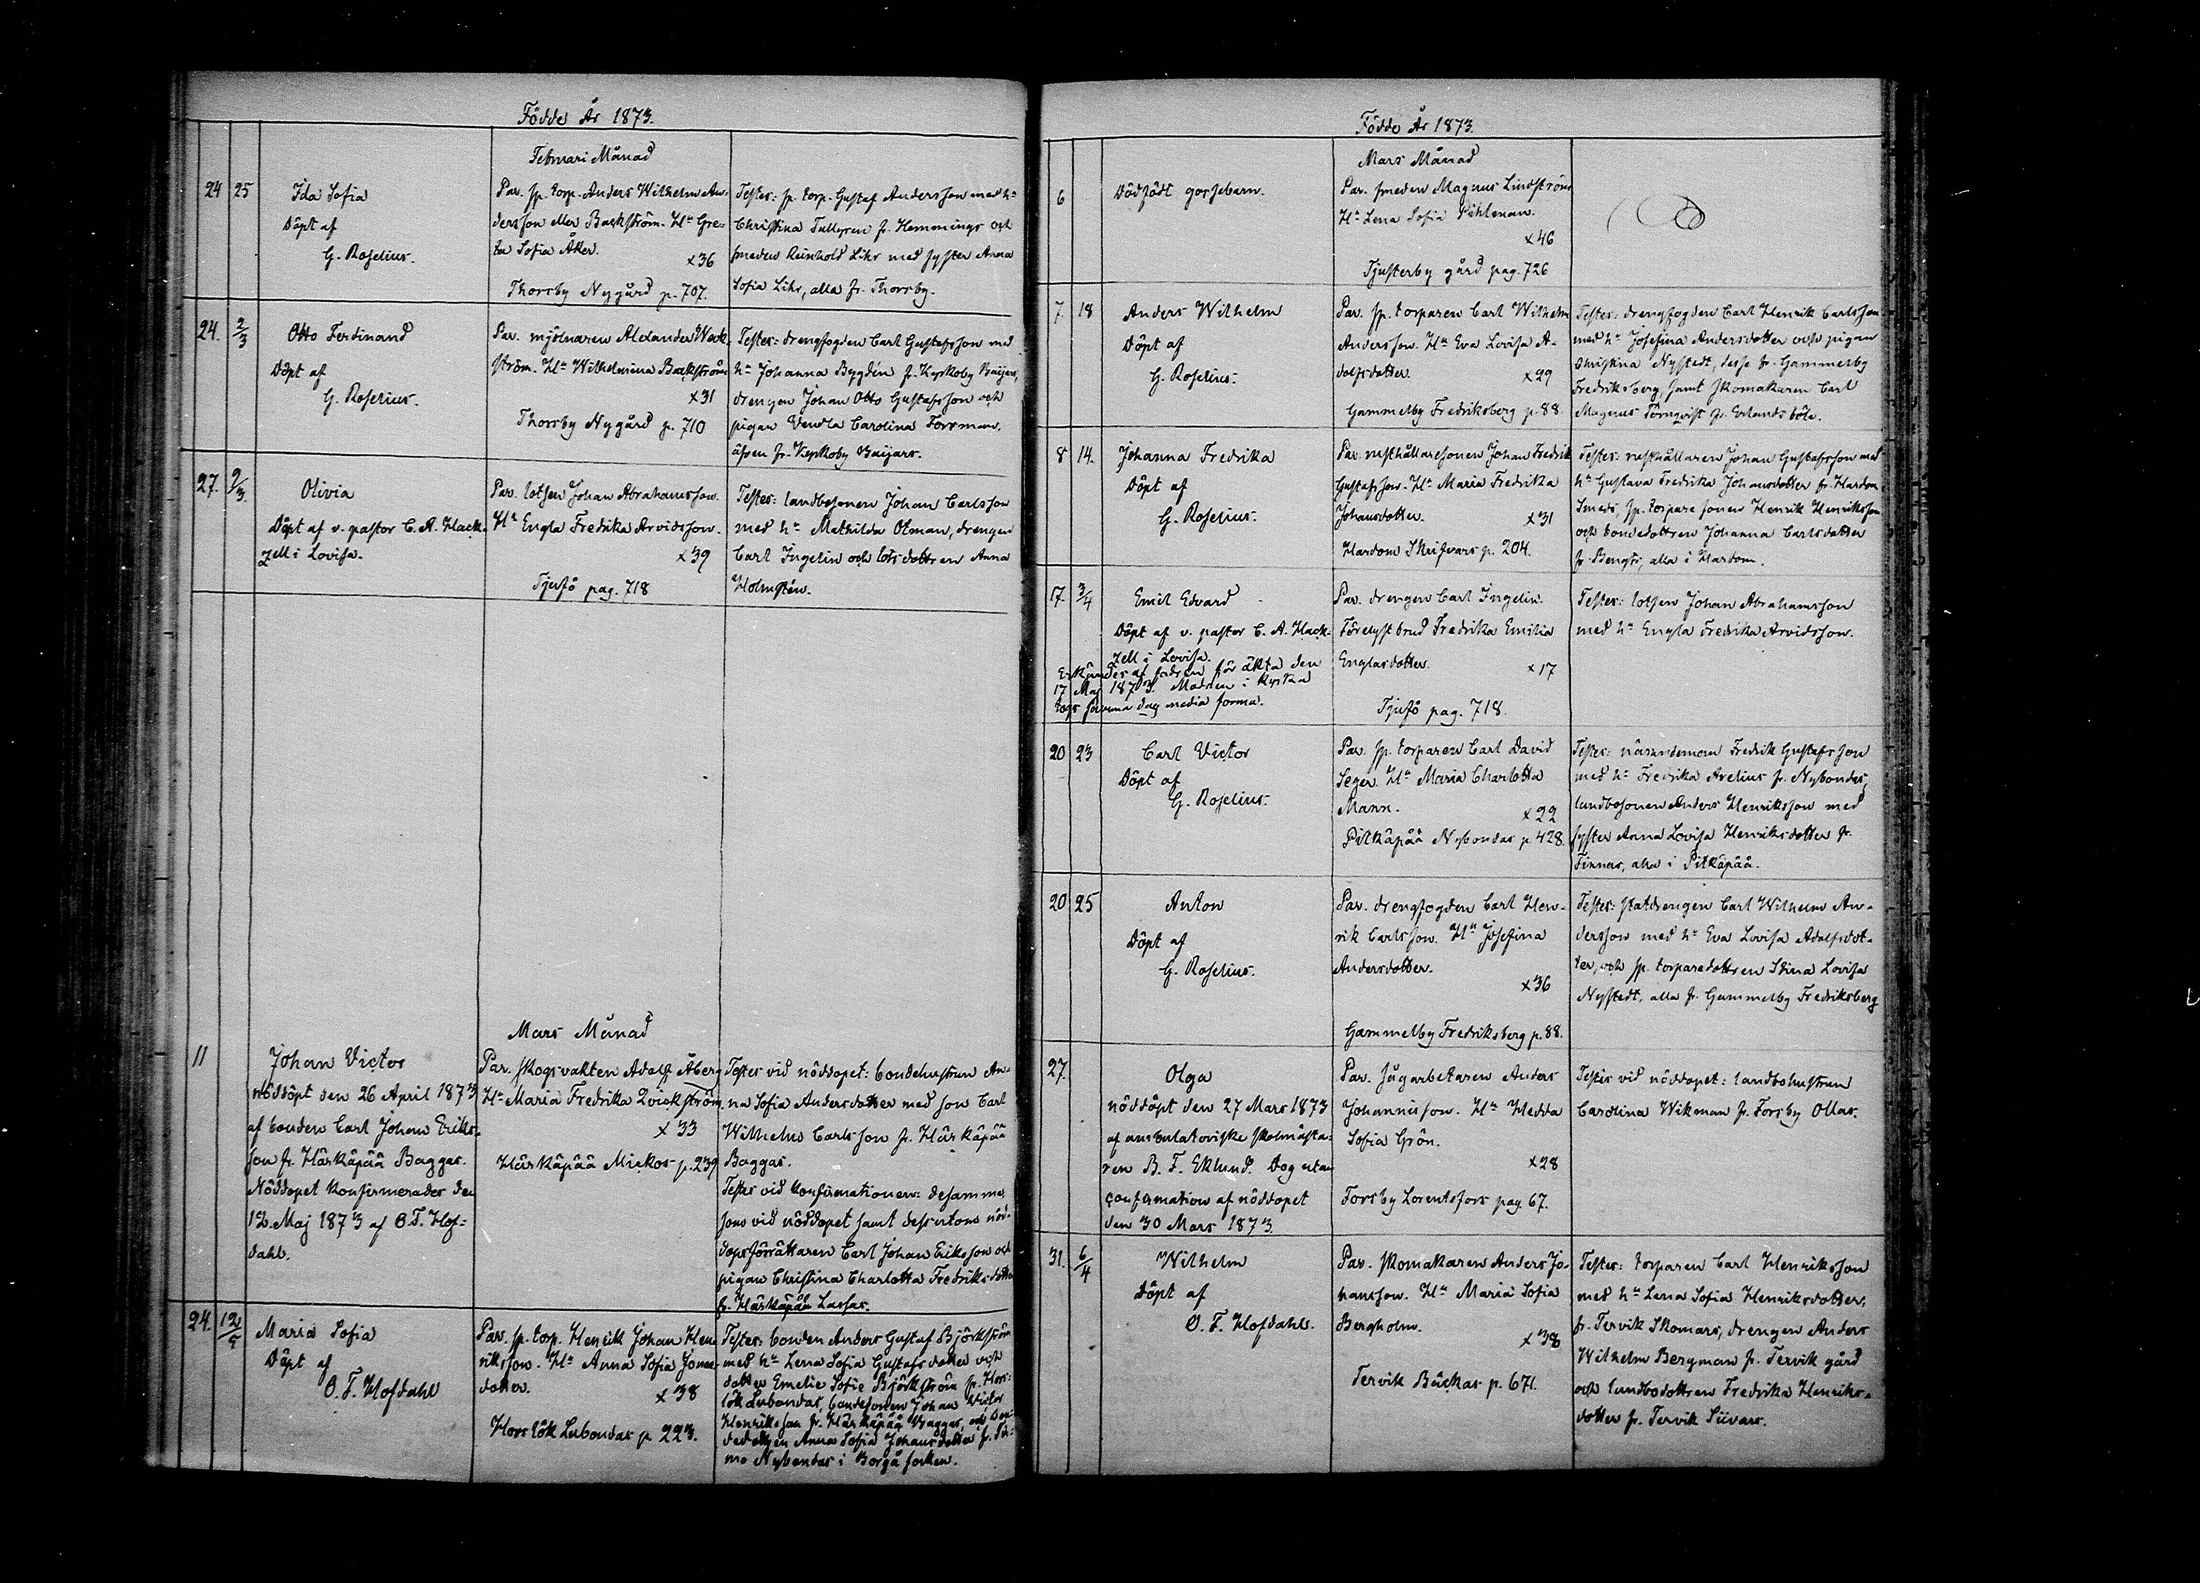 Födde År 1873.
Februari Månad
24 25
Ida Sofia
Döpt af
G. Roselius.
Par. sp. torp. Anders Wilhelm An-
dersson eller Backström. Hu Gre-
ta Sofia Åker.
x36
Thorsby Nygård p. 707.
Testes: sp. torp. Gustaf Andersson med hu
Christina Tullgren fr. Hemmings och
smeden Reinhold Lihr med syster Anna
Sofia Lihr, alla fr. Thorsby.
24. 2/3
Otto Ferdinand
Döpt af
G. Roselius.
Par. mjölnaren Alexander Wack-
ström. Hu Wilhelmina Backström
x31
Thorsby Nygård p. 710
Testes: drengfogden Carl Gustafsson med
hu Johanna Bygdén fr. Kyrkoby Baijars,
drengen Johan Otto Gustafsson och
pigan Vendla Carolina Forsman,
äfven fr. Kyrkoby Baijars.
27. 9/3.
Olivia
Döpt af v. pastor C. A. Hack-
zell i Lovisa.
Par. lotsen Johan Abrahamsson.
Hu Engla Fredrika Arvidsson.
x39
Tjusö pag. 718
Testes: landbosonen Johan Carlsson
med hu Mathilda Öhman, drengen
Carl Ingelin och lotsdottren Anna
Holmstén.
Mars Månad
11
Johan Victor
nöddöpt den 26 April 1873
af bonden Carl Johan Eriks-
son fr. Härkäpää Baggas.
Nöddopet konfirmerades den
12 Maj 1873 af O. F. Hof-
dahl.
Par. skogsvakten Adolf Åberg
Hu Maria Fredrika Qvickström.
x 33
Härkäpää Mickos p. 239
Testes vid nöddopet: bondehustrun An-
na Sofia Andersdotter med son Carl
Wilhelm Carlsson fr. Härkäpää
Baggas.
Testes vid konfirmationen: desamma,
som vid nöddopet samt dessutom nöd-
dopsförrättaren Carl Johan Eriksson och
pigan Christina Charlotta Fredriksdotter
fr. Härkäpää Lassas.
24. 12/4
Maria Sofia
Döpt af
O. F. Hofdahl
Par. sp. torp. Henrik Johan Hen-
riksson. Hu Anna Sofia Jonas-
dotter.
x 38
Horslök Lubondas p. 223.
Testes: bonden Anders Gustaf Björkström
med hu Lena Sofia Gustafsdotter och
dotter Emelie Sofie Björkström fr. Hors-
lök Lubondas, bondesonen Johan Victor
Henriksson fr. Härkäpää Baggas, och bon-
dedottren Anna Sofia Johansdotter fr.
Nybondas i Borgå socken.
Födde År 1873.
Mars Månad
6
Dödfödt gossebarn.
Par. smeden Magnus Lindström
Hu Lena Sofia Pihlman.
x46
Tjusterby gård pag. 726
7. 18
Anders Wilhelm
Döpt af
G. Roselius.
Par. sp. torparen Carl Wilhelm
Andersson. Hu Eva Lovisa A-
dolfsdotter.
x29
Gammelby Fredriksberg p. 88.
Testes: drengfogden Carl Henrik Carlsson
med hu Josefina Andersdotter och pigan
Christina Nystedt, desse fr. Gammelby
Fredriksberg, samt skomakaren Carl
Magnus Törnqvist fr. Erlandsböle.
8 14.
Johanna Fredrika
Döpt af
G. Roselius.
Par. rusthållaresonen Johan Fredrik
Gustafsson. Hu Maria Fredrika
Johansdotter.
x31
Hardom Skrifvars p. 204.
Testes: rusthållaren Johan Gustafsson med
hu Gustava Fredrika Johansdotter fr. Hardom
Smeds, sp. torpare sonen Henrik Henriksson
och bondedottren Johanna Carlsdotter
fr Bengts, alla i Hardom.
17. 3/4
Emil Edvard
Döpt af v. pastor C. A. Hack-
zell i Lovisa.
Erkändes af fadren för äkta den
17 Maj 1873. Modren i kyrka
togs samma dag media forma.
Par. drengen Carl Ingelin.
Förelyst brud Fredrika Emilia
Englasdotter.
x17
Tjusö pag. 718.
Testes: lotsen Johan Abrahamsson
med hu Engla Fredrika Arvidsson.
20 23
Carl Victor
Döpt af
G. Roselius.
Par. sp. torparen Carl David
Seger. Hu Maria Charlotta
Mann.
x22
Pitkäpää Nybondas p. 428.
Testes: nämndeman Fredrik Gustafsson
med hu Fredrika Avelius fr. Nybondas,
landbosonen Anders Henriksson med
syster Anna Lovisa Henriksdotter fr.
Finnas, alla i Pitkäpää.
20 25
Anton
Döpt af
G. Roselius.
Par. drengfogden Carl Hen-
rik Carlsson. Hu Josefina
Andersdotter.
x36
Gammelby Fredriksberg p. 88.
Testes: statdrengen Carl Wilhelm An-
dersson med hu Eva Lovisa Adolfsdot-
ter, och sp. torparedottren Stina Lovisa
Nystedt, alla fr. Gammelby Fredriksberg
27.
Olga
nöddöpt den 27 Mars 1873
af ambulatoriske skolmästa-
ren B. F. Eklund. Dog utan
confirmation af nöddopet
den 30 Mars 1873.
Par. sågarbetaren Anders
Johannisson. Hu Hedda
Sofia Grön.
x28
Forsby Lorentsfors pag. 67.
Testis vid nöddopet: landbohustrun
Carolina Wikman fr. Forsby Ollas.
31. 6/4
Wilhelm
Döpt af
O. F. Hofdahl.
Par. skomakaren Anders Jo-
hansson. Hu Maria Sofia
Bergholm.
x38
Tervik Bäckas p. 671.
Testes: torparen Carl Henriksson
med hu Lena Sofia Henriksdotter,
fr. Tervik Skomars, drengen Anders
Wilhelm Bergman fr. Tervik gård
och landbodottren Fredrika Henriks-
dotter fr. Tervik Siivars.